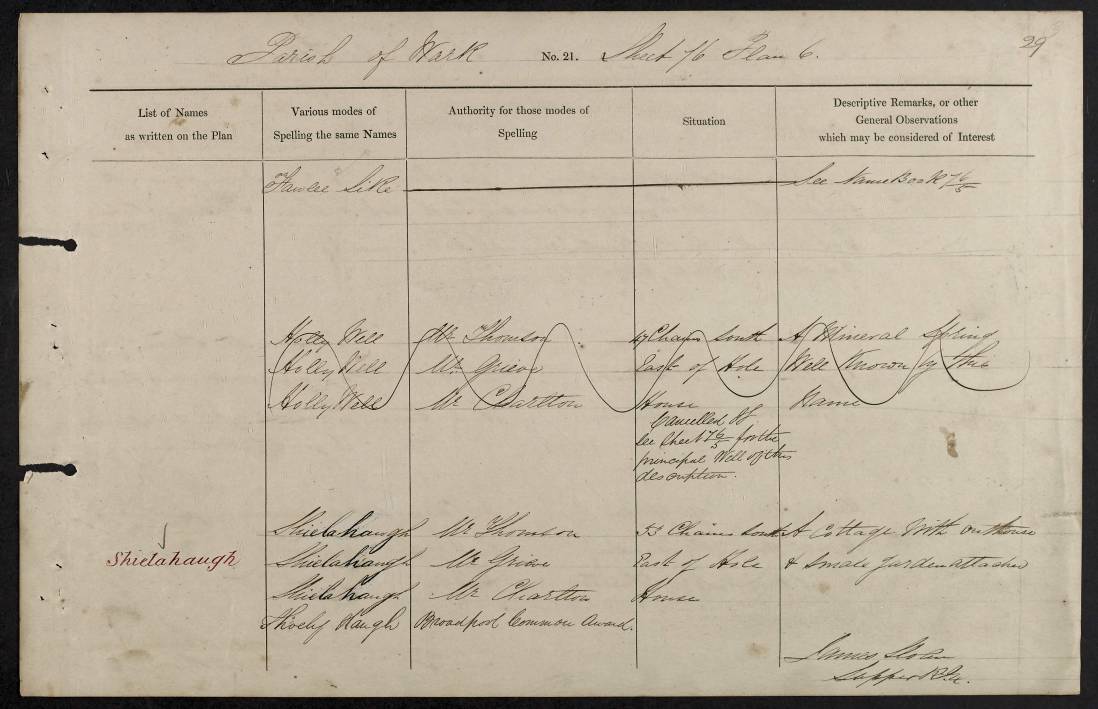 29
Parish of Wark No. 21. Sheet 76 Plan 6.
List of Names
as written on the Plan
Various modes of
Spelling the same Names
Authority for those modes of
Spelling
Situation
Descriptive Remarks, or other
General Observations
which may be considered of Interest
Fawlee Sike See Name Book 76/5
Holly Well Mr Thomson 47 Chains South A Mineral Spring
Holly Well Mr Grieve East of Hole Well Known by this
Holly Well Mr Charlton House Name
Cancelled
See Sheet 76/5 for the
principal Well of this
description.
Shielahaugh Mr Thomson 53 Chains South A Cottage With outhouse
Shielahaugh Shielahaugh Mr Grieve East of Hole & Small Garden attached
Shielahaugh Mr Charlton House
Haugh Broadpool Common Award.
James Sloan
Sapper R.E.